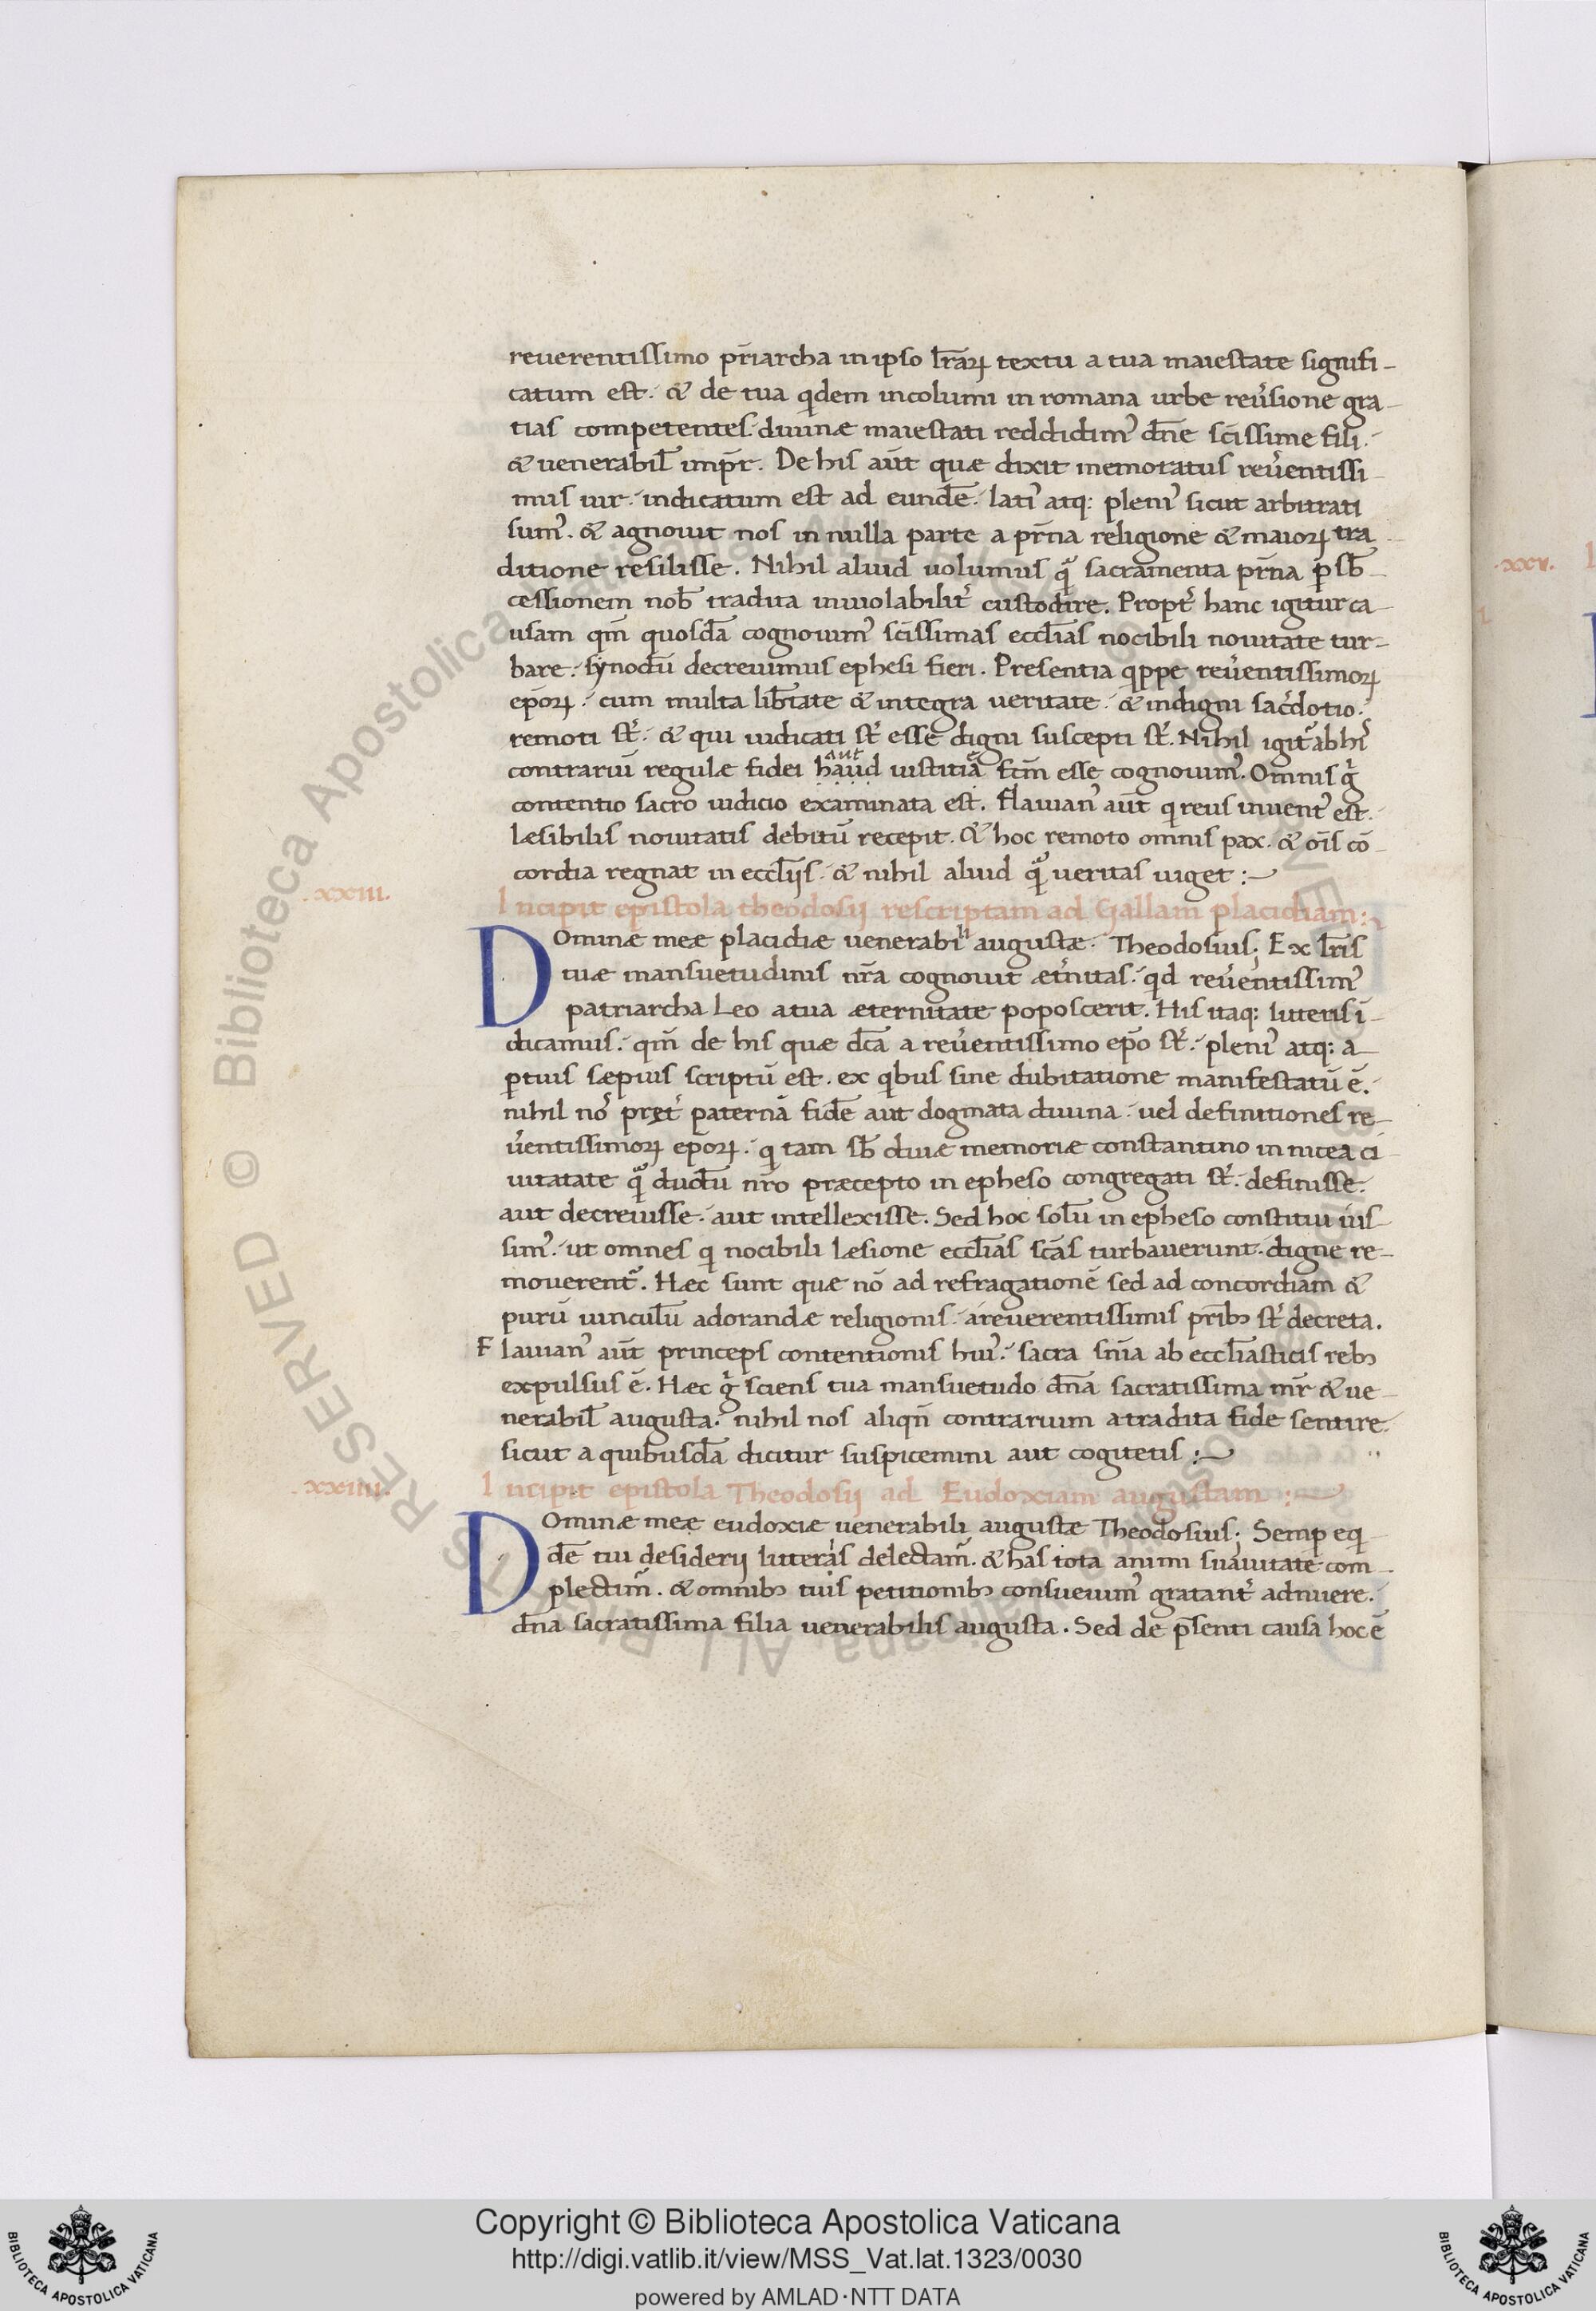 reuerentissimo pr̄iarcha in ipso lr̄aꝝ textu a tua maiestate signifi-
catum est. & de tua qdem incolumi in romana urbe reu̓sione gra-
tias competentes. diuinæ maiestati reddidim᾽ dn̄e scīssime fili.
& uenerabil̄ imp̄r. De his aūt quæ dixit memoratus reu̓entissi-
mus uir. indicatum est ad eundē. lati᾽ atq: pleni᾽ sicut arbitrati
sum᾽. & agnouit nos in nulla parte a pr̄na religione & maioꝝ tra-
ditione resilisse. Nihil aliud uolumus qᷓ sacramenta pr̄na ꝑ sb̄-
cessionem nob̄ tradita inuiolabilit᾽ custodire. Propt᾽ hanc igitur ca-
usam qm̄ quosdā cognouim᾽ scīssimas eccl̄ias nocibili nouitate tur-
bare. synodū decreuimus ephesi fieri. Presentia qppe reu̓entissimoꝝ
ep̄oꝝ. cum multa lib̄tate & integra ueritate. & indigni sac̓dotio.
remoti st᾽. & qui iudicati st᾽ esse digni suscepti st᾽. Nihil igit᷑ ab hi᾽
contrariū regulæ fidei haud aut iustitiā fcm̄ esse cognouim᾽. Omnis g᾽
contentio sacro iudicio examinata est. Flauian᾽ aūt q reus inuent᾽ est.
læsibilis nouitatis debitū recepit. & hoc remoto omnis pax. & oīs cō-
cordia regnat in eccl̄ijs. & nihil aliud qᷓ ueritas uiget :~
.xxiii.
Incipit epistola theodosij rescriptam ad Gallam placidiam:~
Dominæ meæ placidiæ uenerabili augustæ. Theodosius; Ex lr̄is
tuæ mansuetudinis nr̄a cognouit æt᾽nitas. qd reu̓entissim᾽
patriarcha Leo a tua æternitate poposcerit. His itaq: litteris ī-
dicamus. qm̄ de his quæ dc̄a a reu̓entissimo ep̄o st᾽. pleni᾽ atq: a-
ꝑtius sæpius scriptū est. ex qbus sine dubitatione manifestatū ē.
nihil nō præt᾽ paternā fidē aut dogmata diuina. uel definitiones re-
u̓entissimoꝝ ep̄oꝝ. q tam sb̄ diuæ memoriæ constantino in nicea ci-
uitatate qᷓ dudū nr̄o præcepto in epheso congregati st᾽. definisse.
aut decreuisse. aut intellexisse. Sed hoc solū in epheso constitui ius-
sim᾽. ut omnes q nocibili læsione eccl̄ias scās turbauerunt. digne re-
mouerent᷑. Hæc sunt quæ nō ad refragationē sed ad concordiam &
purū uinculū adorandæ religionis. a reuerentissimis pr̄ibꝫ st᾽ decreta.
Flauian᾽ aūt princeps contentionis hui᾽. sacra sn̄ia ab eccl̄iasticis rebꝫ
expulsus ē. Hæc g᾽ sciens tua mansuetudo dn̄a sacratissima mr̄ & ue-
nerabil̄ augusta. nihil nos aliqn̄ contrarium a tradita fide sentire.
sicut a quibusdā dicitur suspicemini aut cogitetis :~
.xxiiii.
Incipit epistola Theodosij ad Eudoxiam augustam :~
Dominæ meæ eudoxiæ uenerabili augustæ Theodosius; Semꝑ eq-
dē tui desiderij litteris delectam᷑. & has tota animi suauitate com-
plectim᷑. & omnibꝫ tuis petitionibꝫ consueuim᾽ gratant᾽ adnuere.
dn̄a sacratissima filia uenerabilis augusta. Sed de p̄senti causa hoc ē
.xxv.
RESERVED © Biblioteca Apostolica Vaticana
Copyright © Biblioteca Apostolica Vaticana
http://digi.vatlib.it/view/MSS_Vat.lat.1323/0030
powered by AMLAD·NTT DATA
BIBLIOTECA APOSTOLICA VATICANA
BIBLIOTECA APOSTOLICA VATICANA